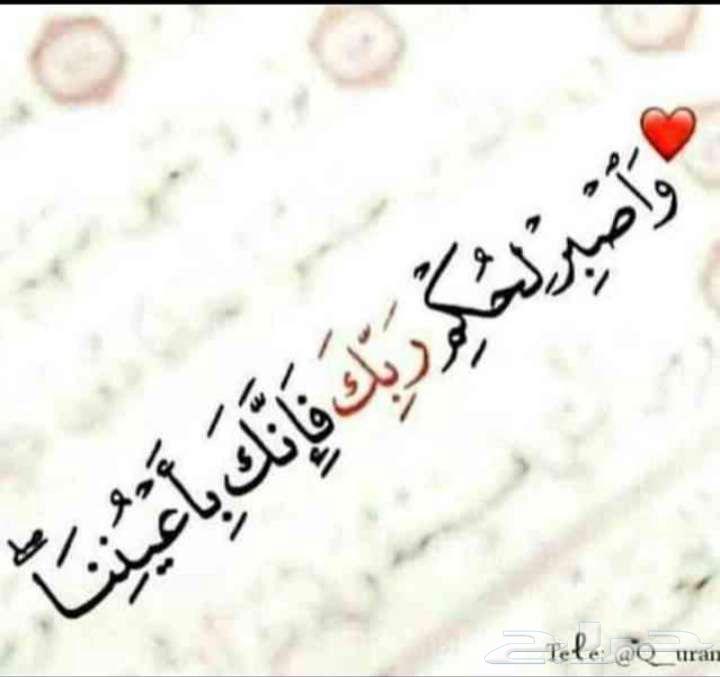 ❤️وَٱصْبِرْ لِحُكْمِ رَبِّكَ فَإِنَّكَ بِأَعْيُنِنَا ۖ
Tele: @Q_uran
حراج